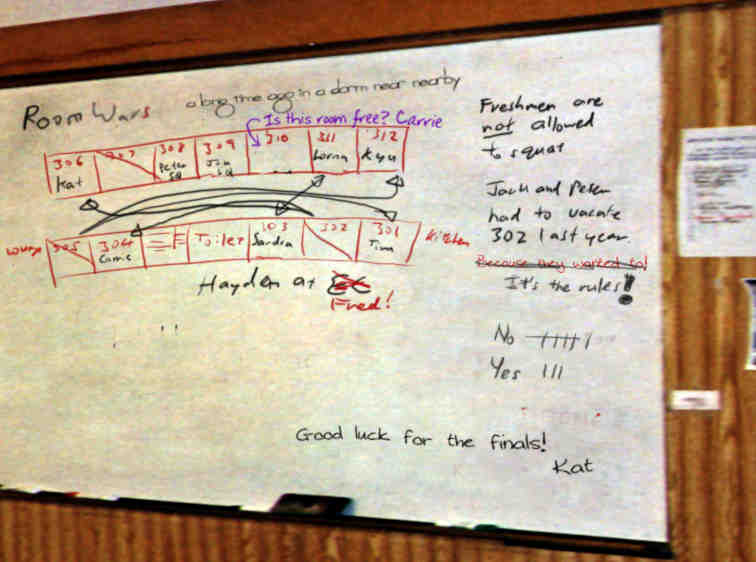 Room Wars a long time ago in a dorm near nearby
Is this room free? Carrie
306 307 308 309 310 311 312
Kat Peter SQ Jon SQ Lorna Kyu
Lounge 305 304 Toilet 303 302 301 Kitchen
Carrie Sandra Tim
Hayden at
Fred!
Freshmen are
not allowed
to squat
Jack and Peter
had to vacate
302 last year.
Because they wanted to!
It's the rules!
No
Yes
Good luck for the finals!
Kat